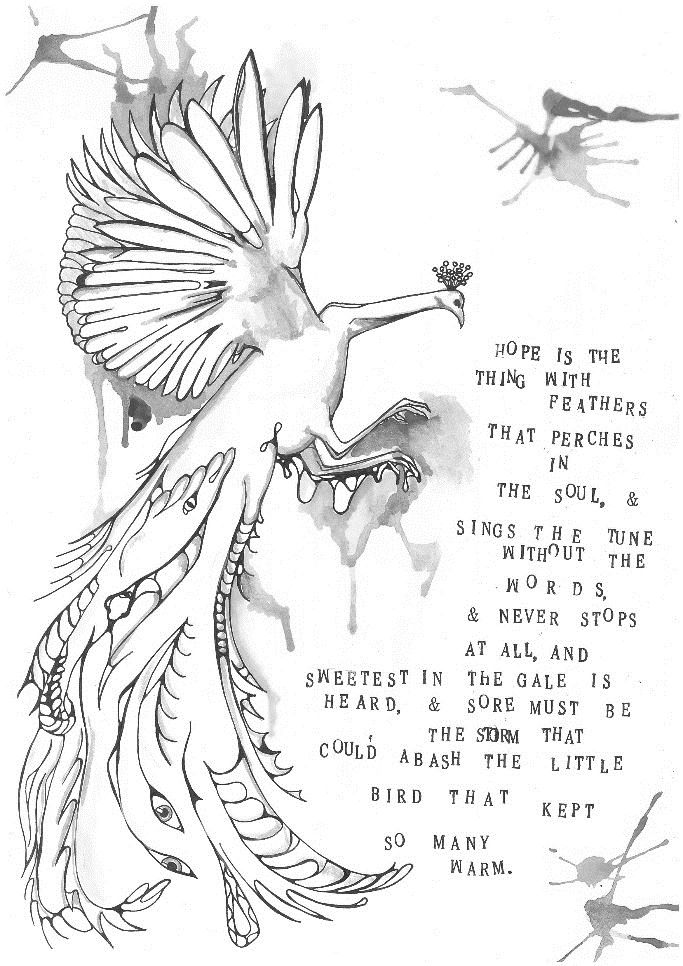 HOPE IS THE
THING WITH
FEATHERS
THAT PERCHES
IN
THE SOUL, &
SINGS THE TUNE
WITHOUT THE
WORDS,
& NEVER STOPS
AT ALL, AND
SWEETEST IN THE GALE IS
HEARD, & SORE MUST BE
THE STORM THAT
COULD ABASH THE LITTLE
BIRD THAT KEPT
SO MANY
WARM.